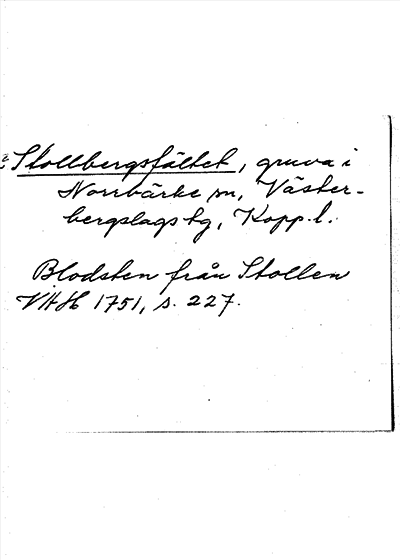 Stollbergsfältet, gruva i
Norrbärke sn, Väster-
bergslags tg, Kopp. l.
Blodsten från Stollen
VAH 1751, s. 227.